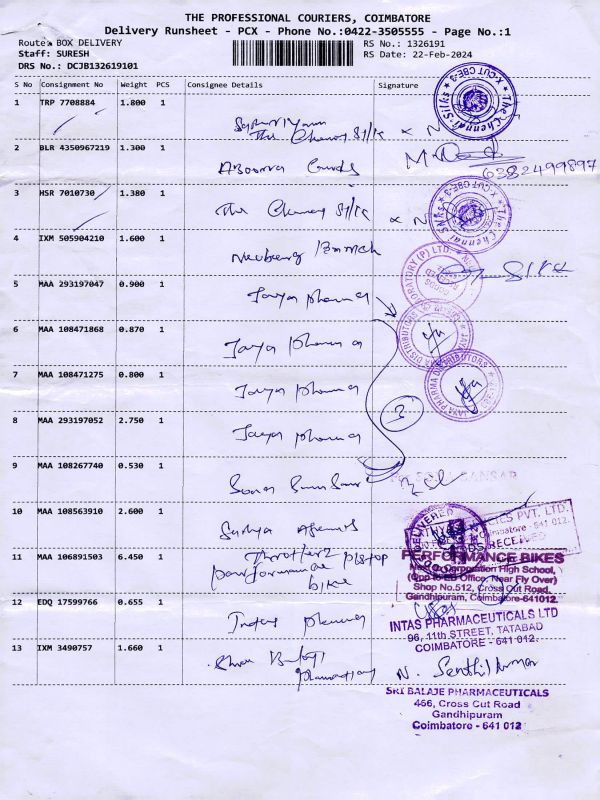 THE PROFESSIONAL COURIERS, COIMBATORE
Delivery Runsheet - PCX - Phone No.:0422-3505555 - Page No.:1
Route: BOX DELIVERY
RS No.: 1326191
Staff: SURESH
RS Date: 22-Feb-2024
DRS No.: DCJB132619101
S No Consignment No Weight PCS Consignee Details Signature
1 TRP 7708884 1.800 1
The Chennai Silks
X-CUT CBE-3
2 BLR 4350967219 1.300 1
6382499897
3 HSR 7010730 1.380 1
The Chennai Silk
The Chennai Silks
X-CUT CBE-3
4 IXM 505904210 1.600 1
Newberg Branch
5 MAA 293197047 0.900 1
Jaya pharma
6 MAA 108471868 0.870 1
Jaya pharma
7 MAA 108471275 0.800 1
Jaya pharma
JAYA PHARMA DISTRIBUTORS
3
8 MAA 293197052 2.750 1
Jaya pharma
9 MAA 108267740 0.530 1
10 MAA 108563910 2.600 1
Sathya
DELIVERED
PVT. LTD.
Coimbatore - 641 012.
RECEIVED
11 MAA 106891503 6.450 1
performance
bike
PERFORMANCE BIKES
Corporation High School,
(Opp to EB Office, Near Fly Over)
Shop No.512, Cross Cut Road,
Gandhipuram, Coimbatore-641012.
12 EDQ 17599766 0.655 1
Intas pharma
INTAS PHARMACEUTICALS LTD
96, 11th STREET, TATABAD
COIMBATORE - 641 012.
13 IXM 3490757 1.660 1
N. Senthilkumar
SRI BALAJE PHARMACEUTICALS
466, Cross Cut Road
Gandhipuram
Coimbatore - 641 012